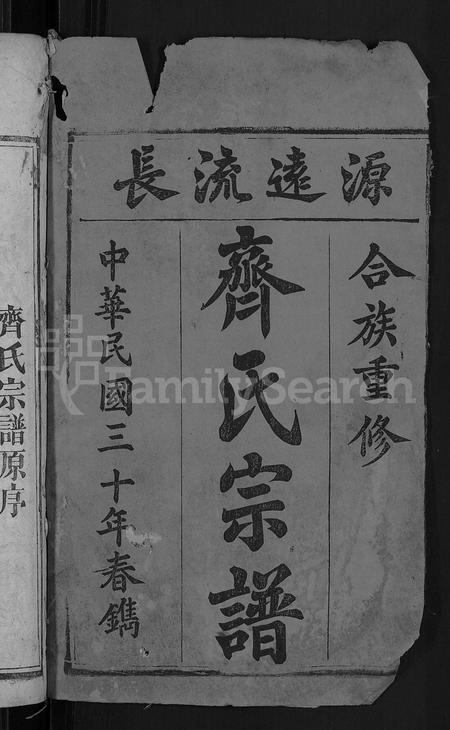 源遠流長
合族重修
齊氏宗譜
中華民國三十年春鐫
齊氏宗譜原序
FamilySearch